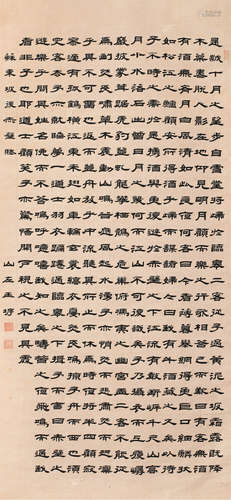 是歲十月之望步自雪堂將歸于臨皋二客從予過黃泥之坂霜露既降
木葉盡脫人影在地仰見明月顧而樂之行歌相答已而歎曰有客無酒
有酒無肴月白風清如此良夜何客曰今者薄暮舉網得魚巨口細鱗狀
如松江之鱸顧安所得酒乎歸而謀諸婦婦曰我有斗酒藏之久矣以待
子不時之需於是攜酒與魚復遊於赤壁之下江流有聲斷岸千尺山高
月小水落石出曾日月之幾何而江山不可復識矣予乃攝衣而上履巉
巖披蒙茸踞虎豹登虬龍攀棲鶻之危巢俯馮夷之幽宮蓋二客不能從焉劃然長
嘯草木震動山鳴谷應風起水涌予亦悄然而悲肅然而恐凜
乎其不可留也反而登舟放乎中流聽其所止而休焉時夜將半四顧寂
寥適有孤鶴橫江東來翅如車輪玄裳縞衣戛然長鳴掠予舟而西也須臾客去予亦
就睡夢一道士羽衣蹁躚過臨皋之下揖予而言曰赤壁之
遊樂乎問其姓名俛而不答嗚呼噫嘻我知之矣疇昔之夜飛鳴而過我
者非子也耶道士顧笑予亦驚寤開戶視之不見其處
蘇東坡後赤壁賦 山左王垿